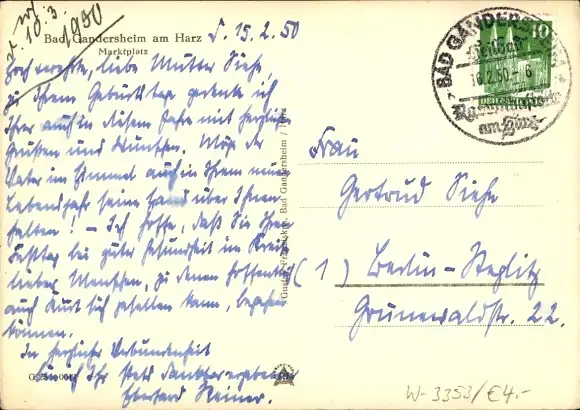 Bad Gandersheim am Harz
Marktplatz
d. 15.2.50
10.3.
1950
Hochverehrte, liebe Mutter Siehe,
zu Ihrem Geburtstage gedenke ich
Ihrer auch in diesem Jahre mit herzlichen
Grüßen und Wünschen. Möge der
Vater im Himmel auch in Ihrem neuen
Lebensjahr seine Hand über Ihnen
halten! – Ich hoffe, daß Sie Ihren
Festtag bei guter Gesundheit im Kreise
lieber Menschen, zu denen hoffentlich
auch Kurt sich gesellen kann, begehen
können.
In herzlicher Verbundenheit
Ihr stets dankbar ergebener
Eberhard Reiner.
Bad Gandersheim / Harz
BAD GANDERSHEIM
16.2.50
am Harz
10
DEUTSCHE POST
Frau
Gertrud Siehe
(1) Berlin-Steglitz
Grunewaldstr. 22.
W-3353/€4,-